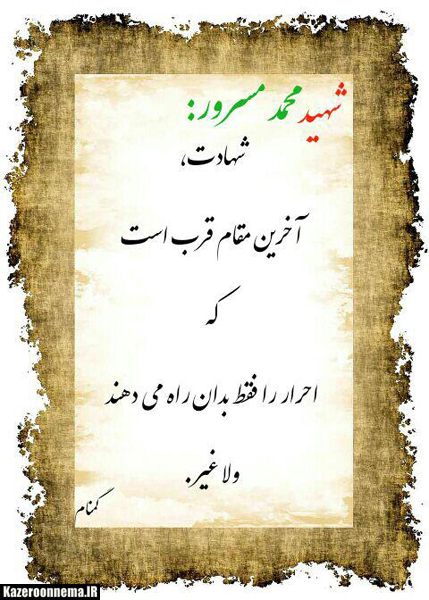 شهید محمد مسرور:
شهادت،
آخرین مقام قرب است
که
احرار را فقط بدان راه می دهند
ولا غیر.
گمنام
Kazeroonnema.IR